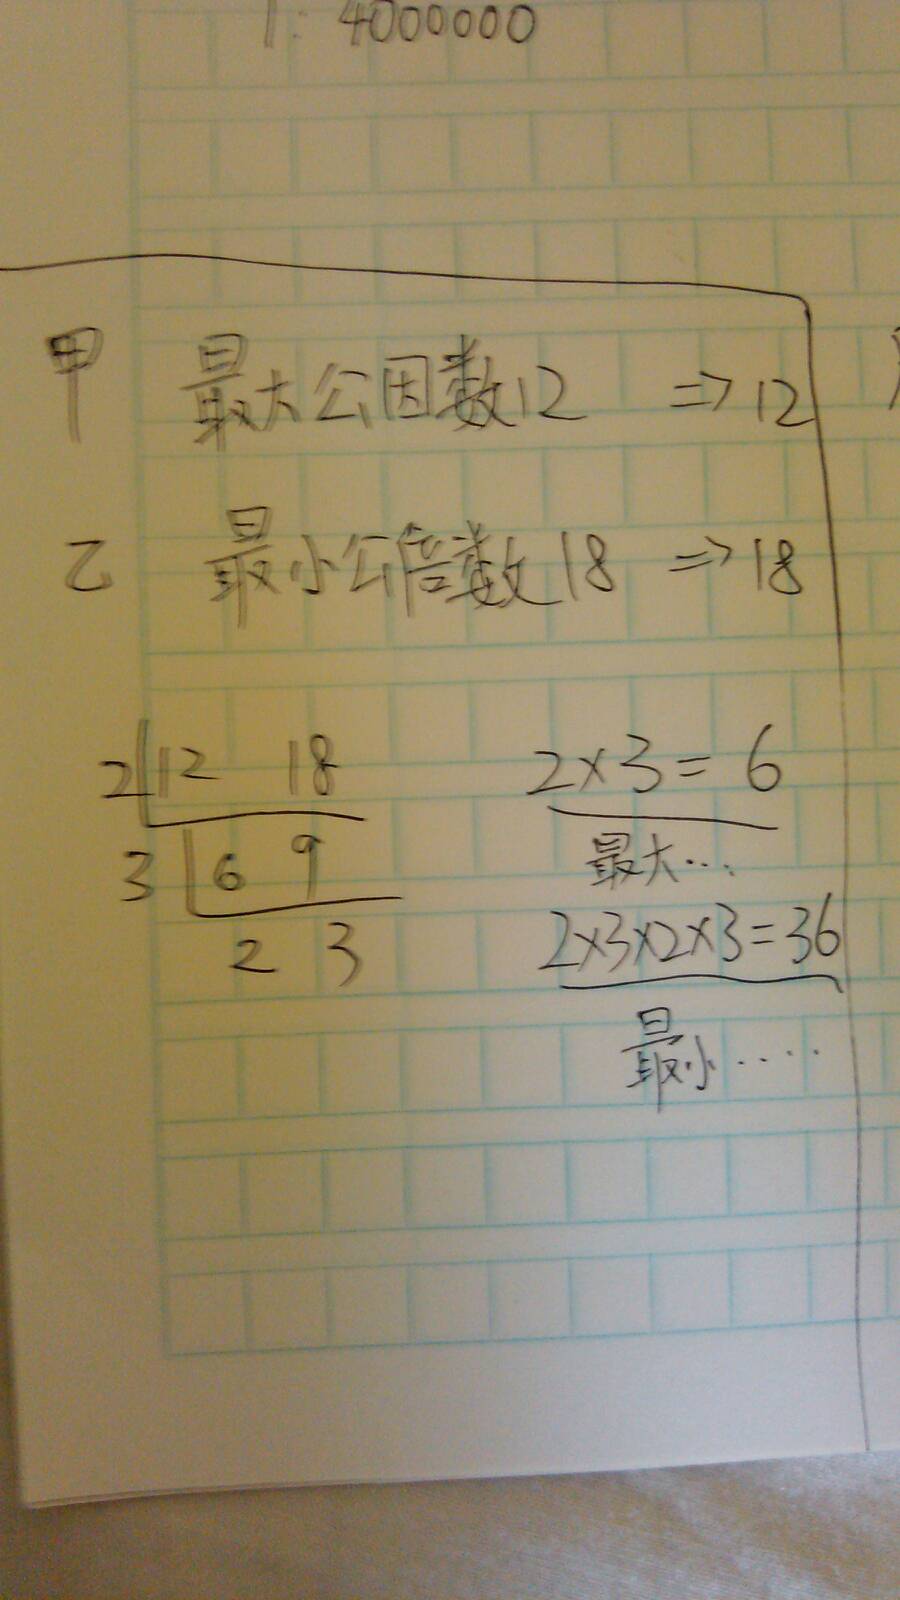 1:4000000
甲 最大公因数12 => 12
乙 最小公倍数18 => 18
2 12 18
3 6 9
2 3
2×3=6
最大…
2×3×2×3=36
最小……